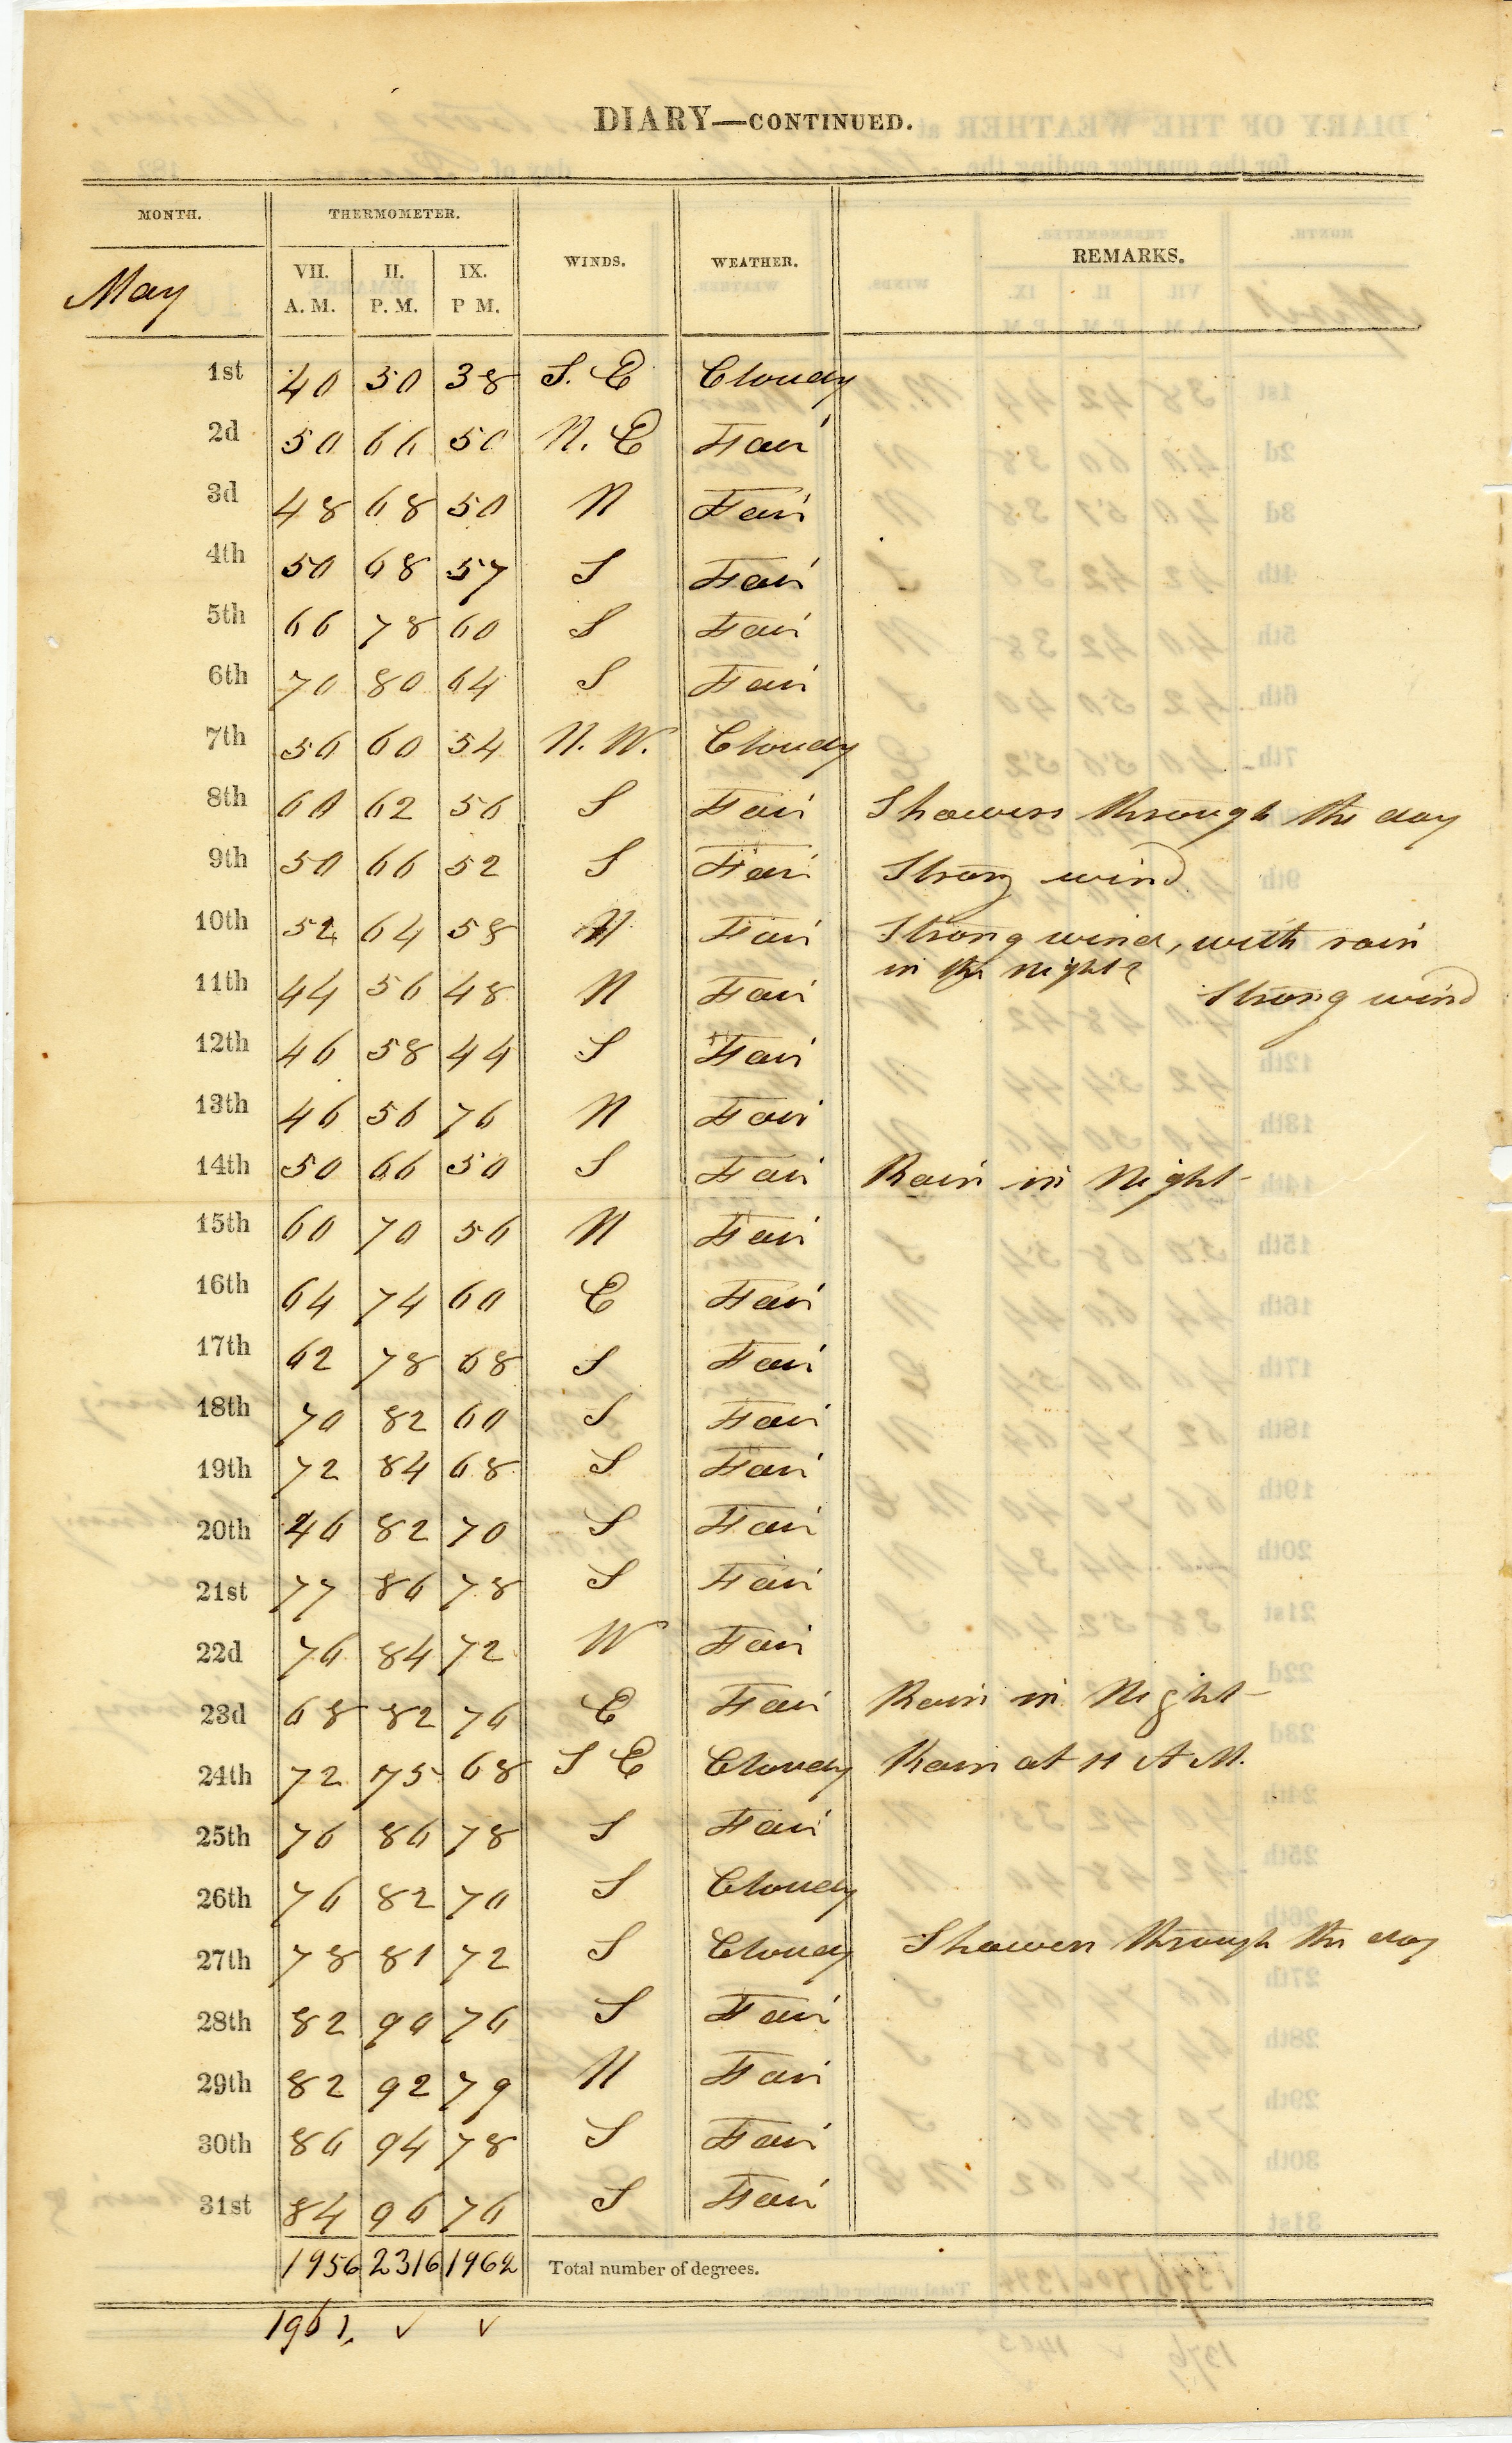 DIARY—CONTINUED.
MONTH. THERMOMETER. WINDS. WEATHER. REMARKS.
May VII. A. M. II. P. M. IX. P M.
1st 40 50 38 S. E Cloudy
2d 50 66 50 N. E Fair
3d 48 68 50 N Fair
4th 50 68 57 S Fair
5th 66 78 60 S Fair
6th 70 80 64 S Fair
7th 56 60 54 N. W. Cloudy
8th 60 62 56 S Fair Showers through the day
9th 50 66 52 S Fair Strong wind
10th 52 64 58 N Fair Strong wind, with rain
in the night
11th 44 56 48 N Fair Strong wind
12th 46 58 44 S Fair
13th 46 56 76 N Fair
14th 50 66 50 S Fair Rain in Night
15th 60 70 56 N Fair
16th 64 74 60 E Fair
17th 62 78 68 S Fair
18th 70 82 60 S Fair
19th 72 84 68 S Fair
20th 46 82 70 S Fair
21st 77 86 78 S Fair
22d 76 84 72 W Fair
23d 68 82 76 E Fair Rain in Night
24th 72 75 68 S E Cloudy Rain at 11 A M.
25th 76 86 78 S Fair
26th 76 82 70 S Cloudy
27th 78 81 72 S Cloudy Showers through the day
28th 82 90 76 S Fair
29th 82 92 79 N Fair
30th 86 94 78 S Fair
31st 84 96 76 S Fair
1956 2316 1962 Total number of degrees.
1961. ✓ ✓